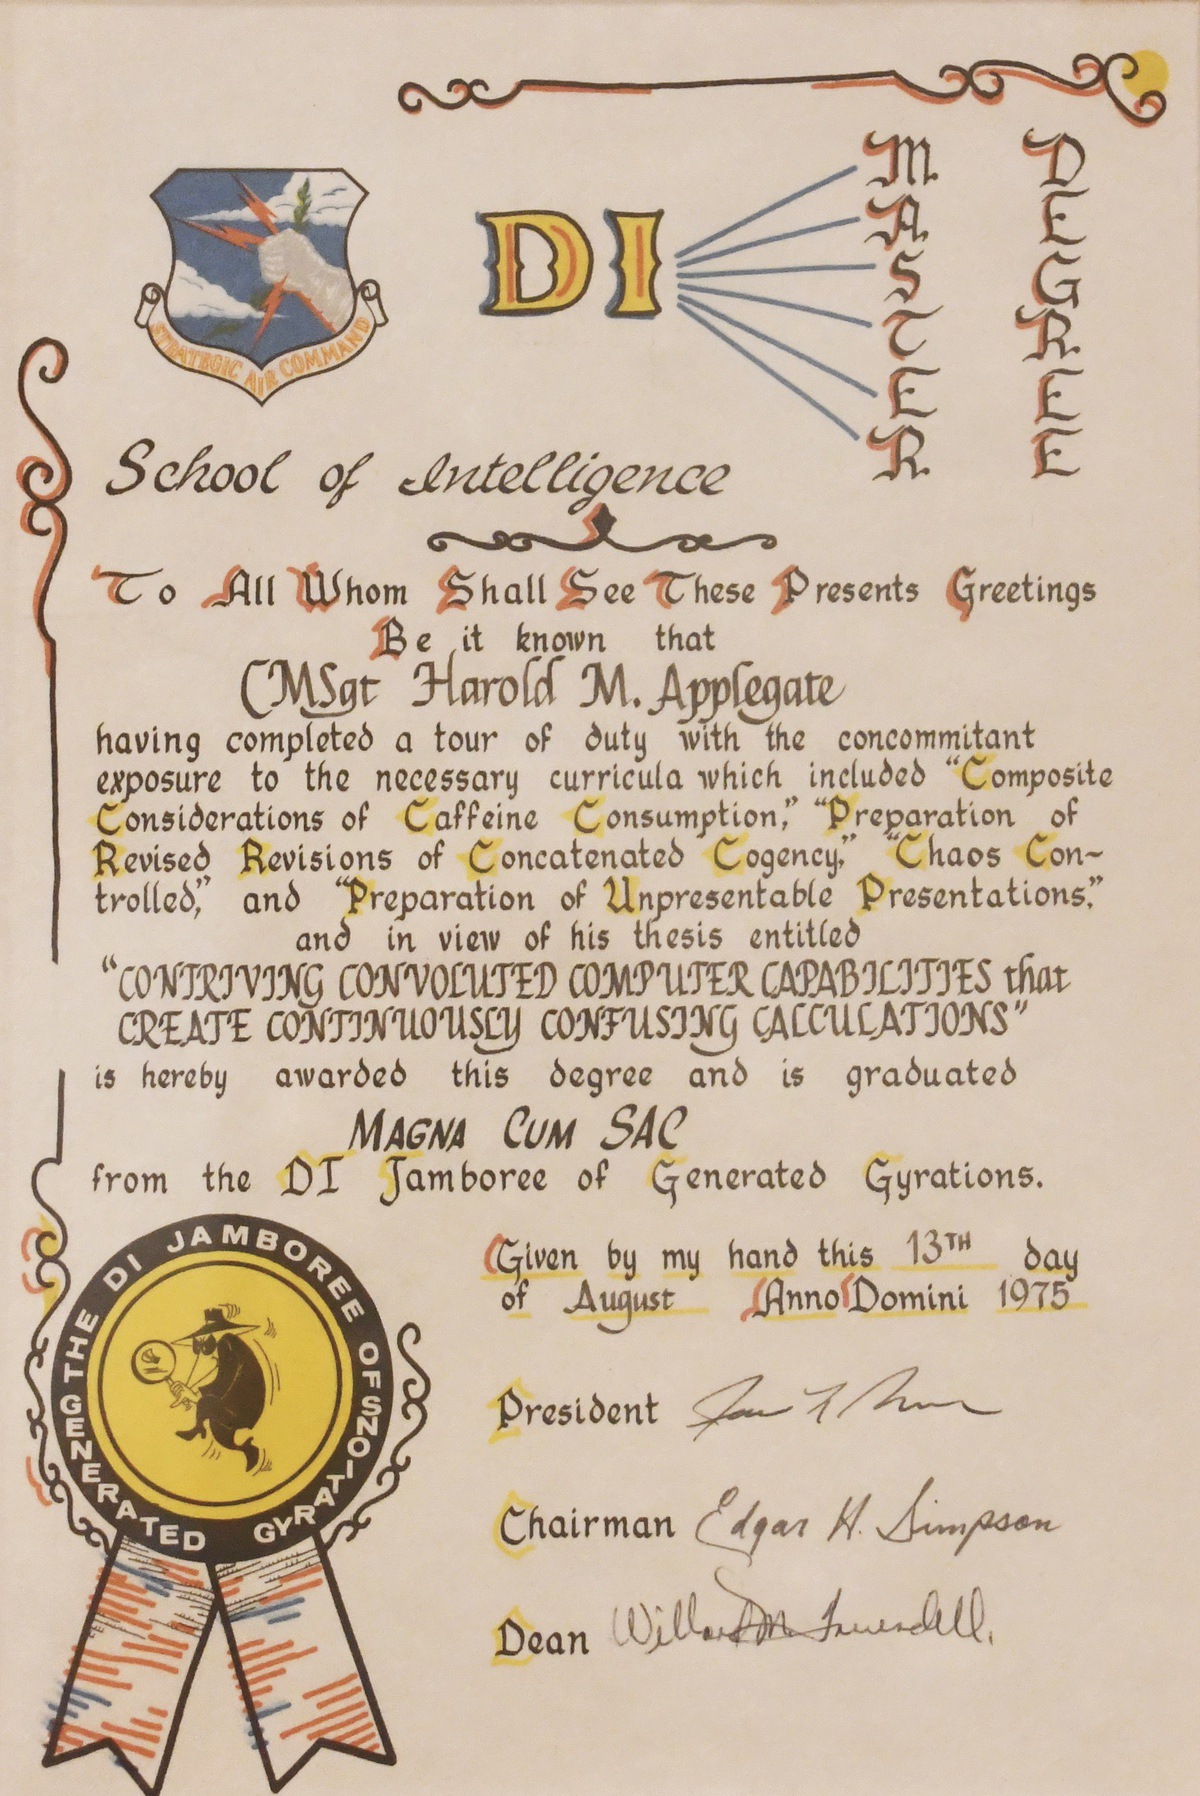 STRATEGIC AIR COMMAND
DI
MASTER
DEGREE
School of Intelligence
To All Whom Shall See These Presents Greetings
Be it known that
CMSgt Harold M. Applegate
having completed a tour of duty with the concommitant
exposure to the necessary curricula which included “Composite
Considerations of Caffeine Consumption,” “Preparation of
Revised Revisions of Concatenated Cogency,” “Chaos Con-
trolled,” and “Preparation of Unpresentable Presentations,”
and in view of his thesis entitled
“CONTRIVING CONVOLUTED COMPUTER CAPABILITIES that
CREATE CONTINUOUSLY CONFUSING CALCULATIONS”
is hereby awarded this degree and is graduated
MAGNA CUM SAC
from the DI Jamboree of Generated Gyrations.
THE DI JAMBOREE OF
GENERATED GYRATIONS
Given by my hand this 13TH day
of August Anno Domini 1975
President
Chairman Edgar H. Simpson
Dean